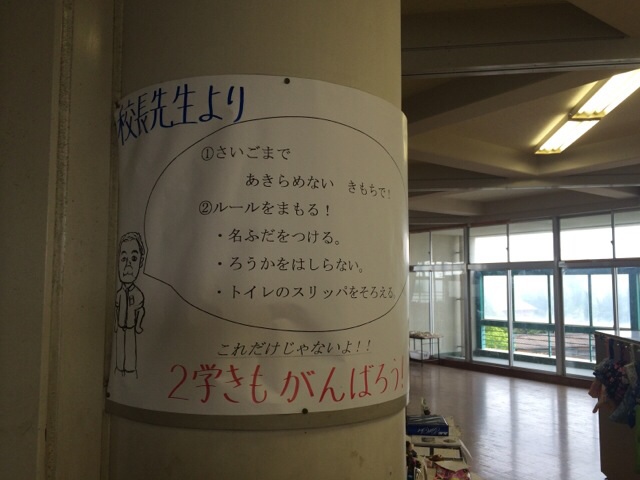 校長先生より
①さいごまで
あきらめない きもちで!
②ルールをまもる!
・名ふだをつける。
・ろうかをはしらない。
・トイレのスリッパをそろえる
これだけじゃないよ!!
2学きも がんばろう!